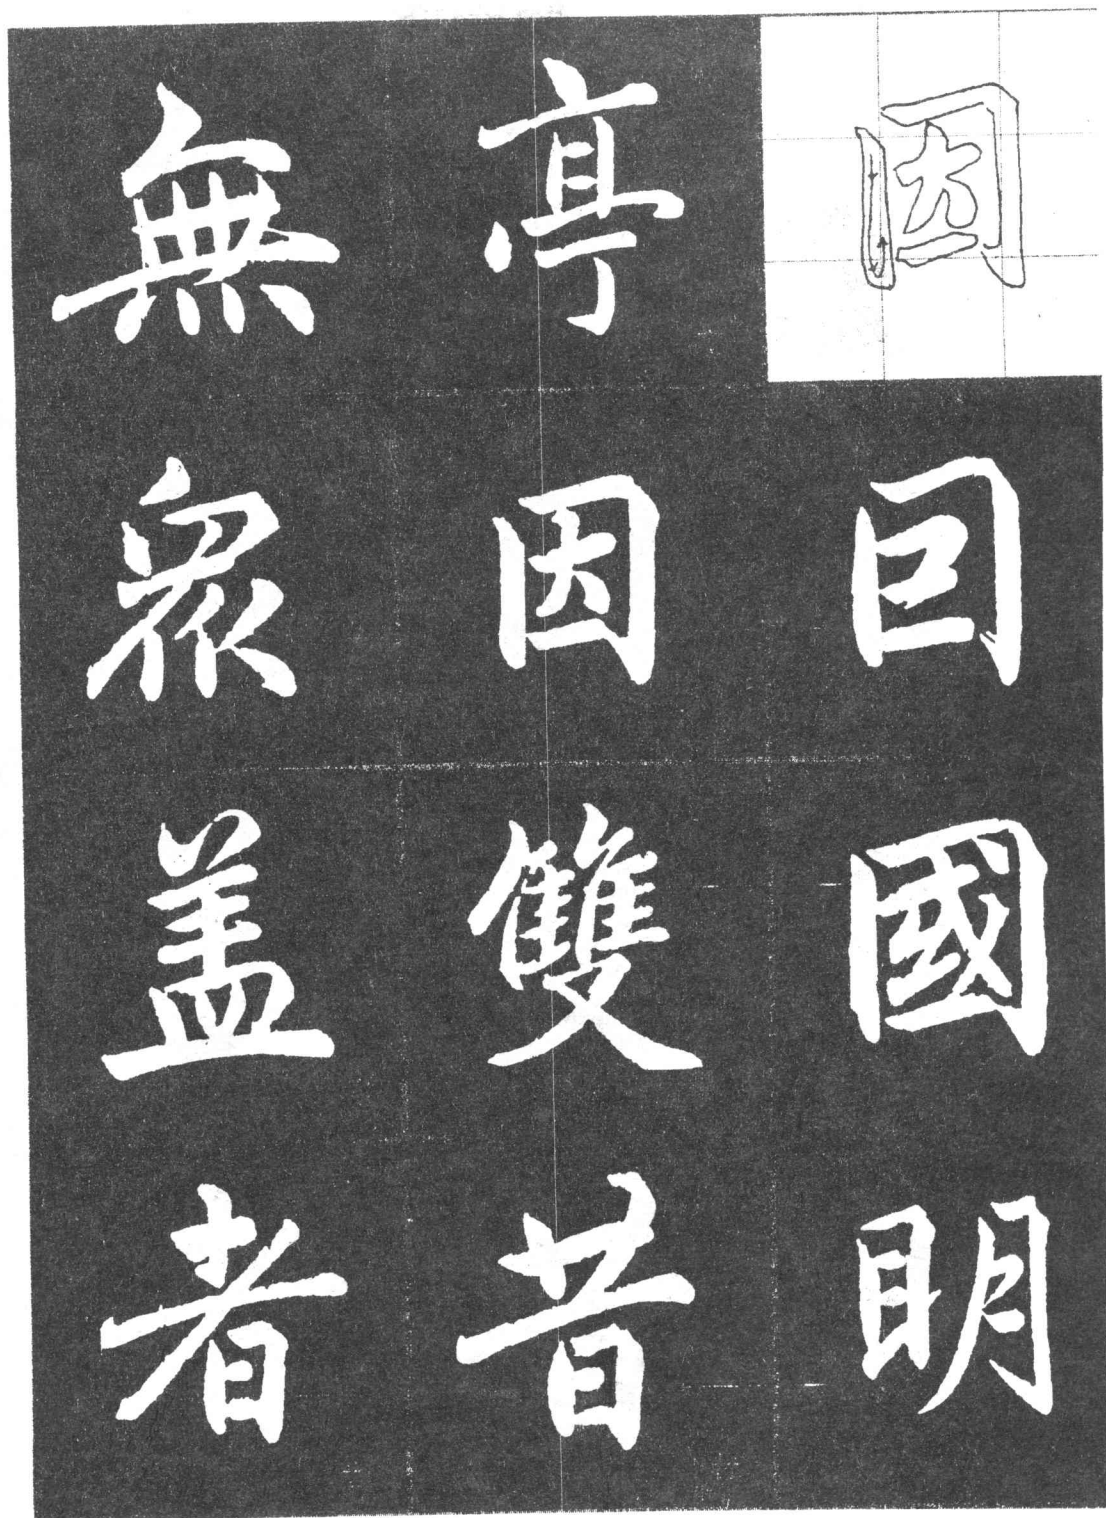 因回國明
亭因雙昔
無眾蓋者